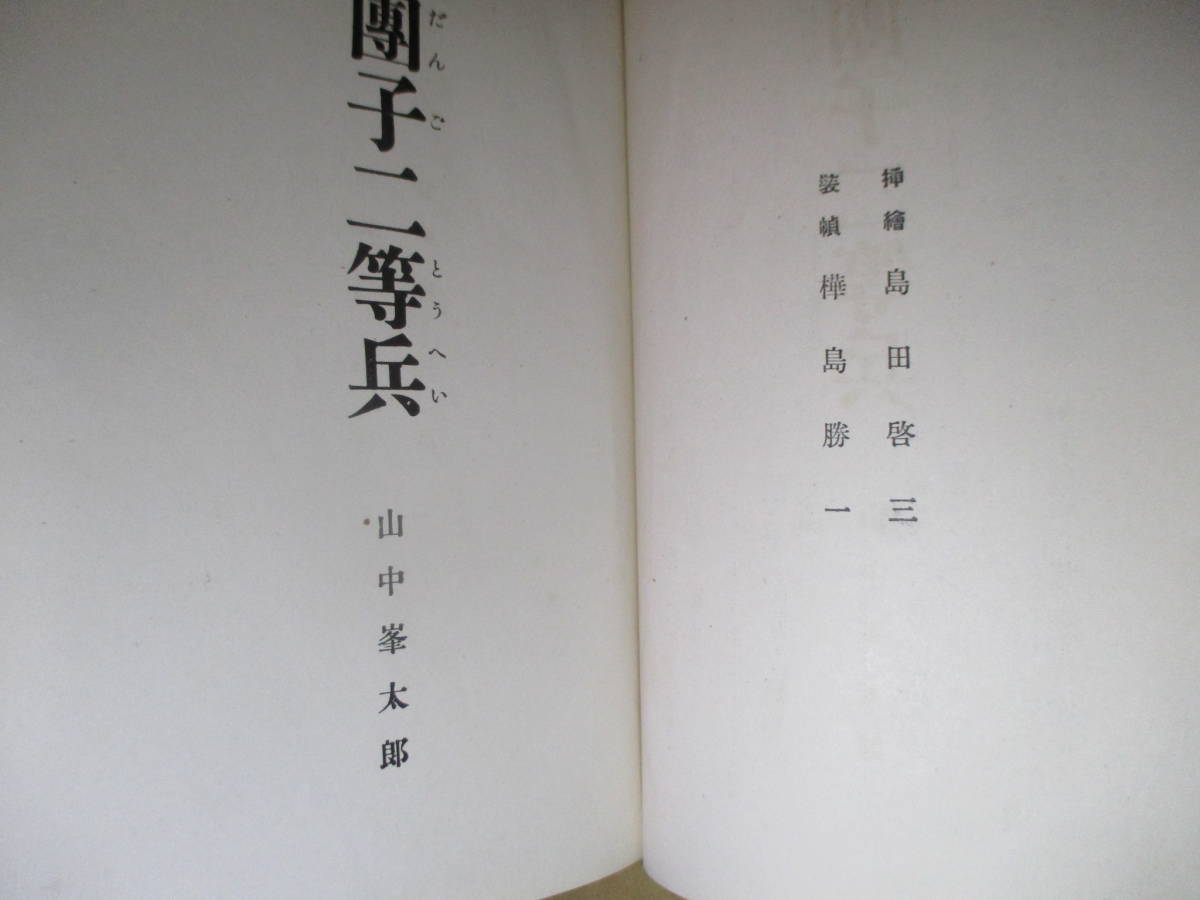 挿繪 島田啓三
裝幀 樺島勝一
團子二等兵
だんご とうへい
山中峯太郎